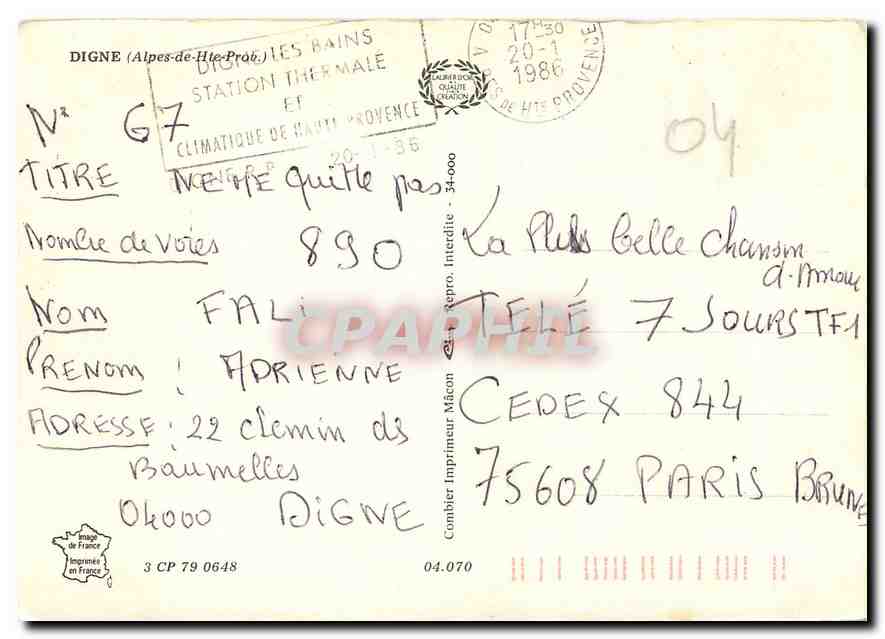 DIGNE (Alpes-de-Hte-Prov.)
DIGNE LES BAINS
STATION THERMALE
ET
CLIMATIQUE DE HAUTE PROVENCE
20-1-86
17H30
20-1
1986
DE HTE PROVENCE
LAURIER D'OR
QUALITÉ
CRÉATION
04
N° 67
TITRE NE ME quitte pas
Nombre de voies 890
Nom FALI
PRENOM : ADRIENNE
ADRESSE : 22 chemin ds
Baumelles
04000 DIGNE
Image
de France
Imprimée
en France
3 CP 79 0648
04.070
Combier Imprimeur Mâcon Repro. Interdite - 34-000
La Plus belle Chanson
d'Amour
TELÉ 7 JOURS TF1
CEDEX 844
75608 PARIS BRUNE
CPAPHIL